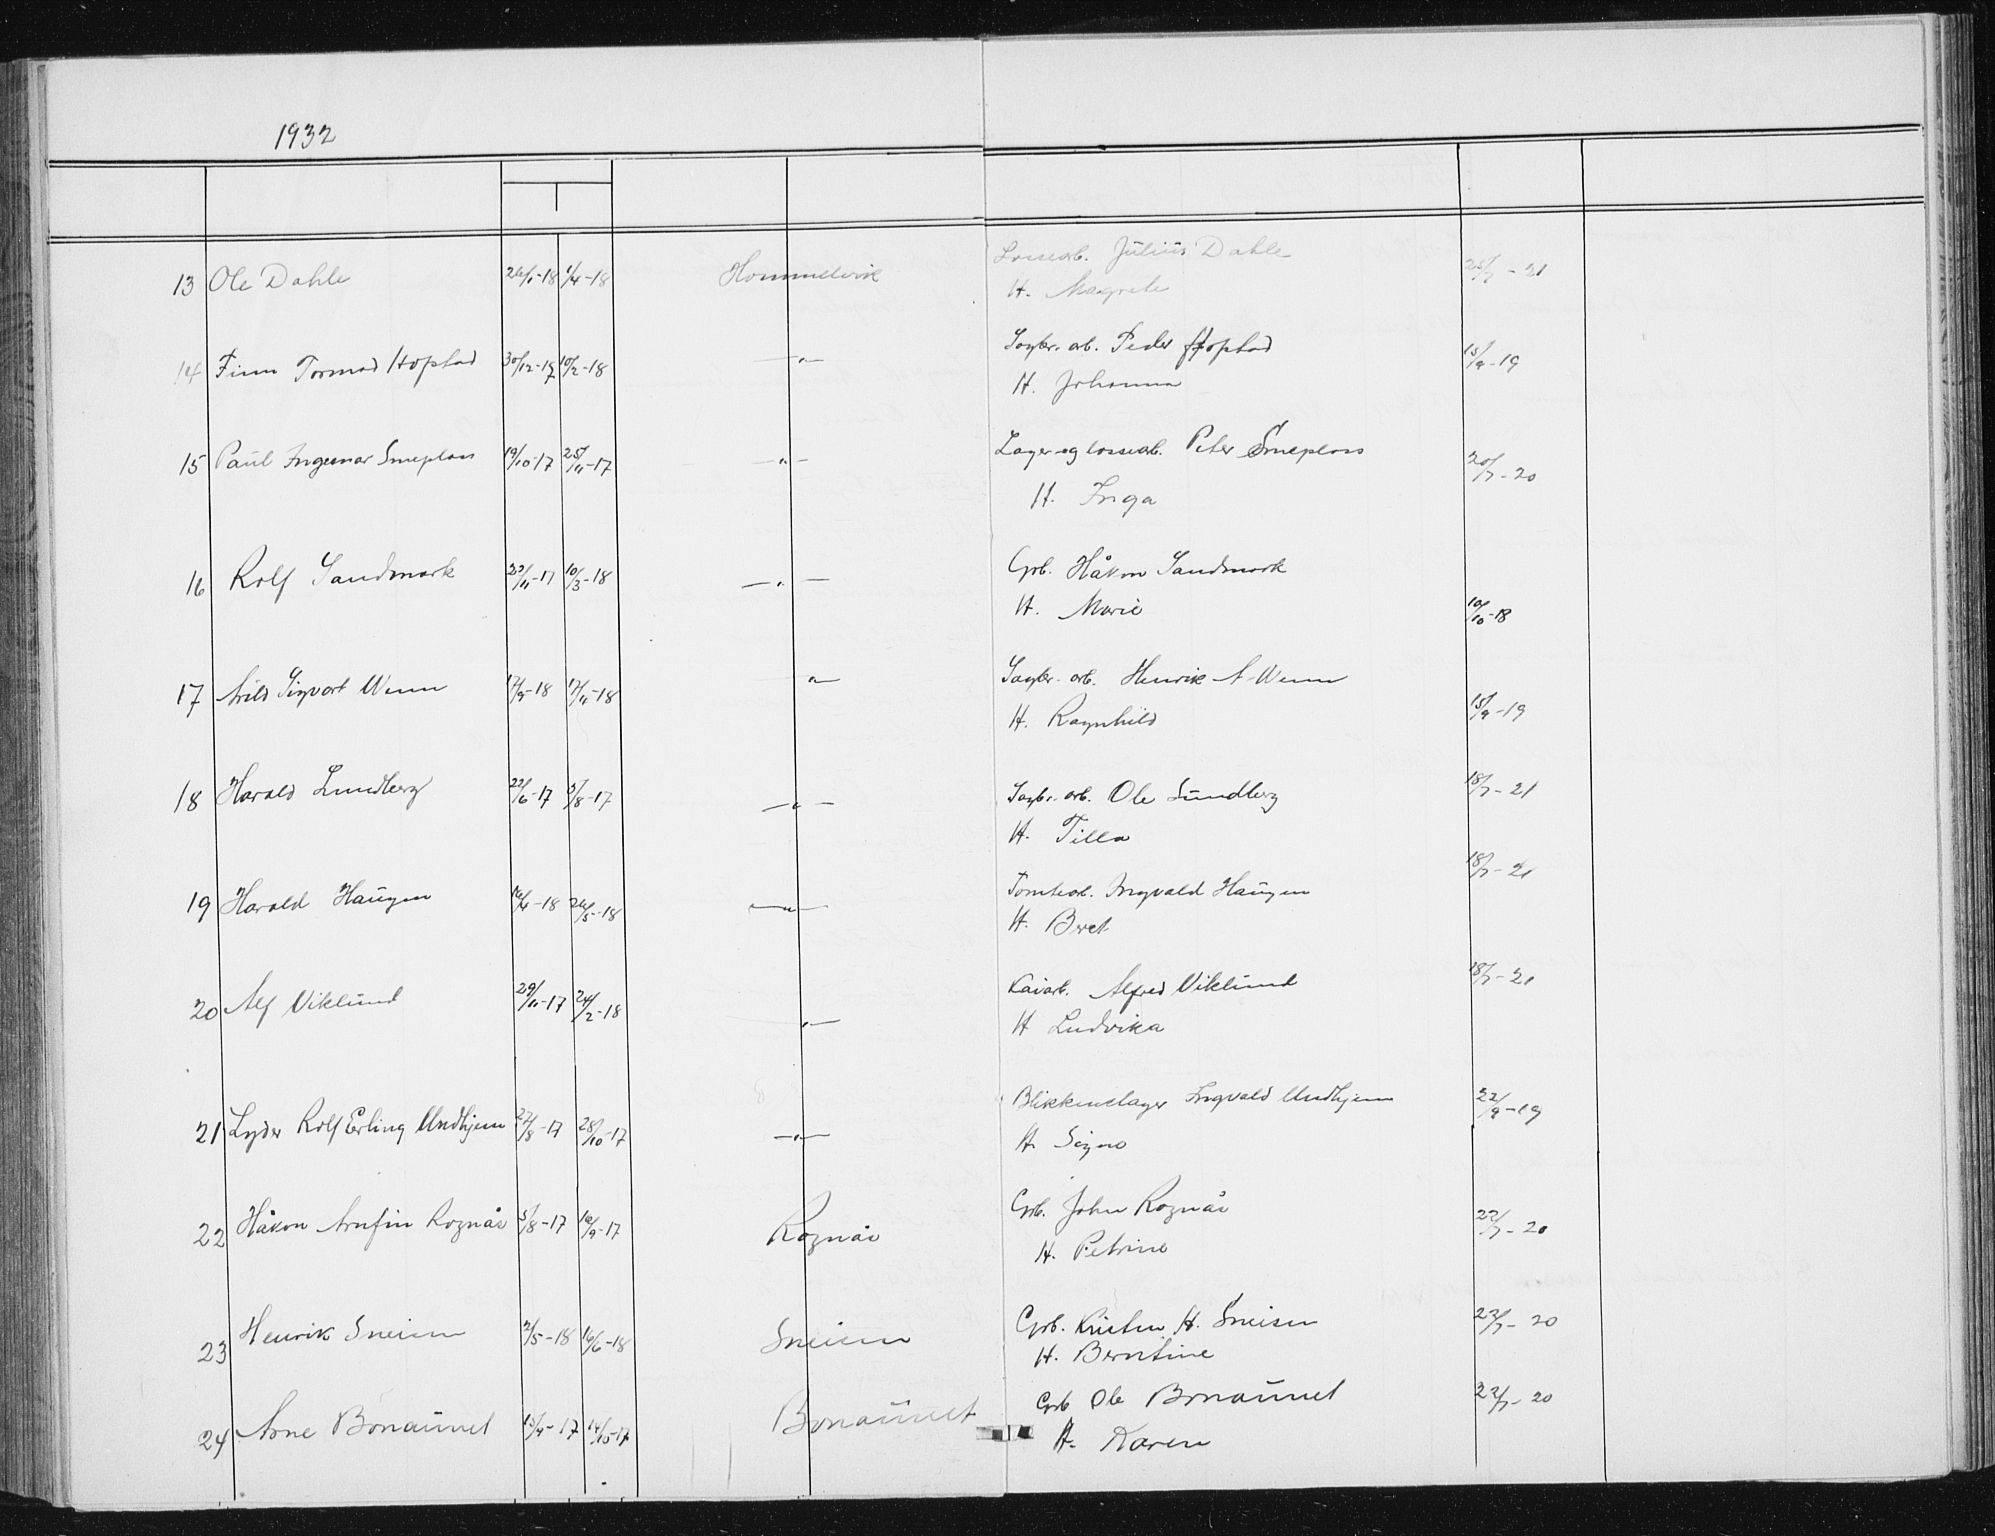 1932
13 Ole Dahle 26/1-18 1/4-18 Hommelvik Lossearb. Julius Dahle 25/7-21
H. Magrete
14 Finn Tormod Hopstad 30/12-17 10/2-18 —"— Sagbr. arb. Peder Hopstad 15/9-19
H. Johanna
15 Paul Ingemar Smeplass 19/10-17 25/11-17 —"— Lager og lossearb. Peter Smeplass 20/7-20
H. Inga
16 Rolf Sandmark 23/11-17 10/3-18 —"— Grb. Håkon Sandmark
H. Marie 10/10-18
17 Arild Sigvart Wenn 17/9-18 17/11-18 —"— Sagbr. arb. Henrik A. Wenn
H. Ragnhild 15/9-19
18 Harald Lundberg 22/6-17 5/8-17 —"— Sagbr. arb. Ole Lundberg 18/7-21
H. Tilla
19 Harald Haugen 16/4-18 26/5-18 —"— Tomtearb. Ingvald Haugen 18/7-21
H. Beret
20 Alf Viklund 29/11-17 24/2-18 —"— Kaiarb. Alfred Viklund 18/7-21
H Ludvika
21 Lyder Rolf Erling Undhjem 27/8-17 28/10-17 —"— Blikkenslager Ingvald Undhjem 22/9-19
H. Signe
22 Håkon Arnfin Rognås 5/8-17 16/9-17 Rognås Grb. John Rognås 22/7-20
H. Petrine
23 Henrik Sneisen 2/5-18 16/6-18 Sneisen Grb. Kristen H. Sneisen 22/7-20
H. Berntine
24 Arne Bonaunet 15/9-17 14/10-17 Bonaunet Grb Ole Bonaunet 22/7-20
H. Karen